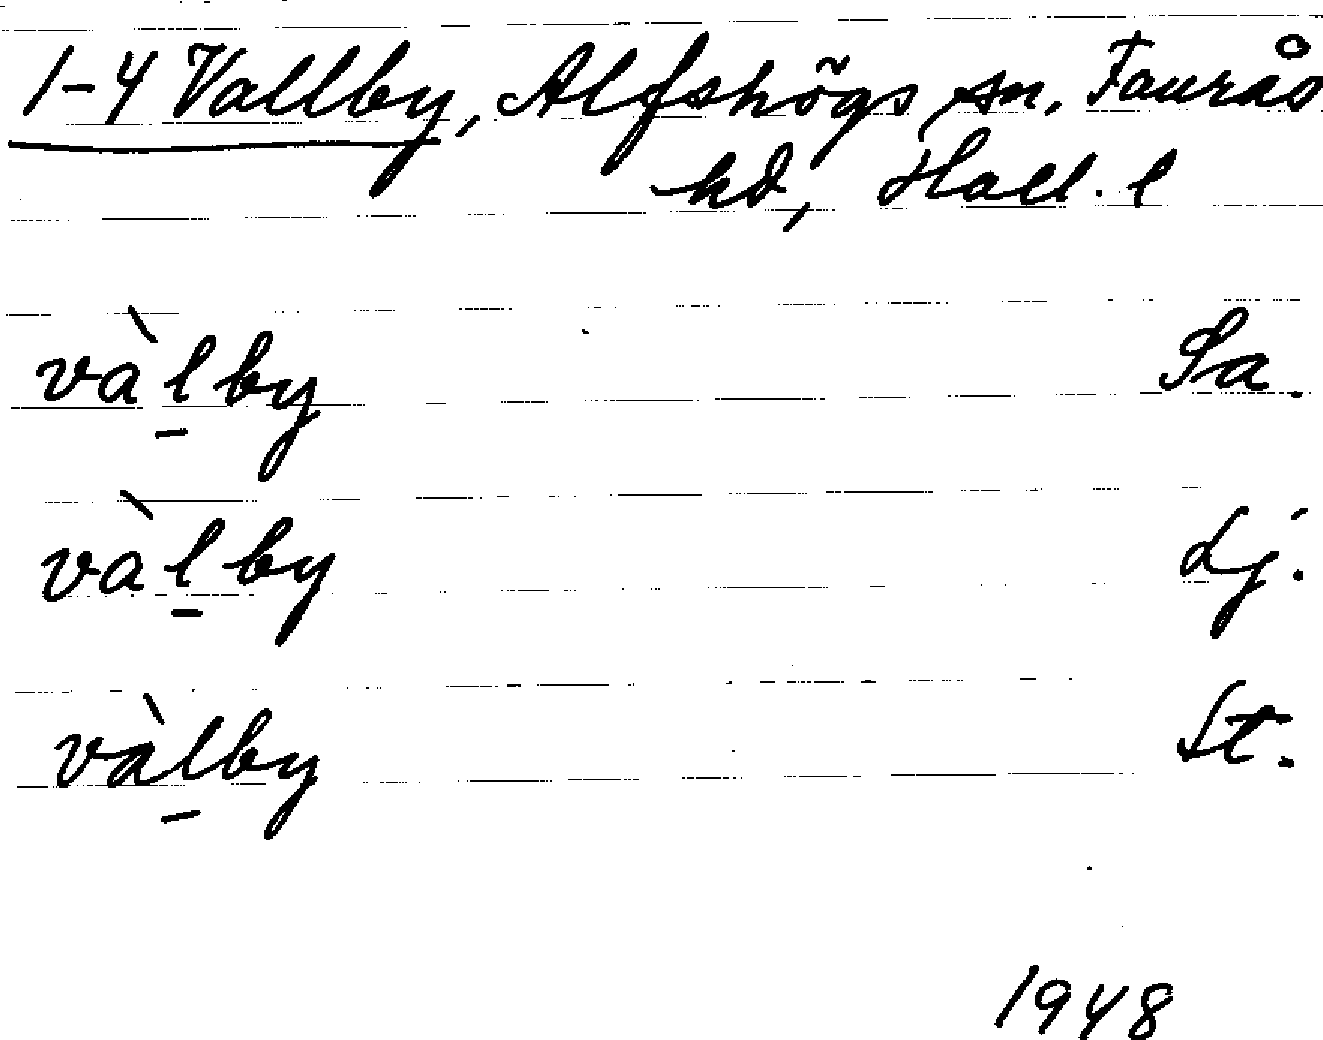 1-4 Vallby, Alfshögs sn, Faurås
hd, Hall. l
vàl̲by Sa.
vàl̲by Lj.
vàl̲by St.
1948